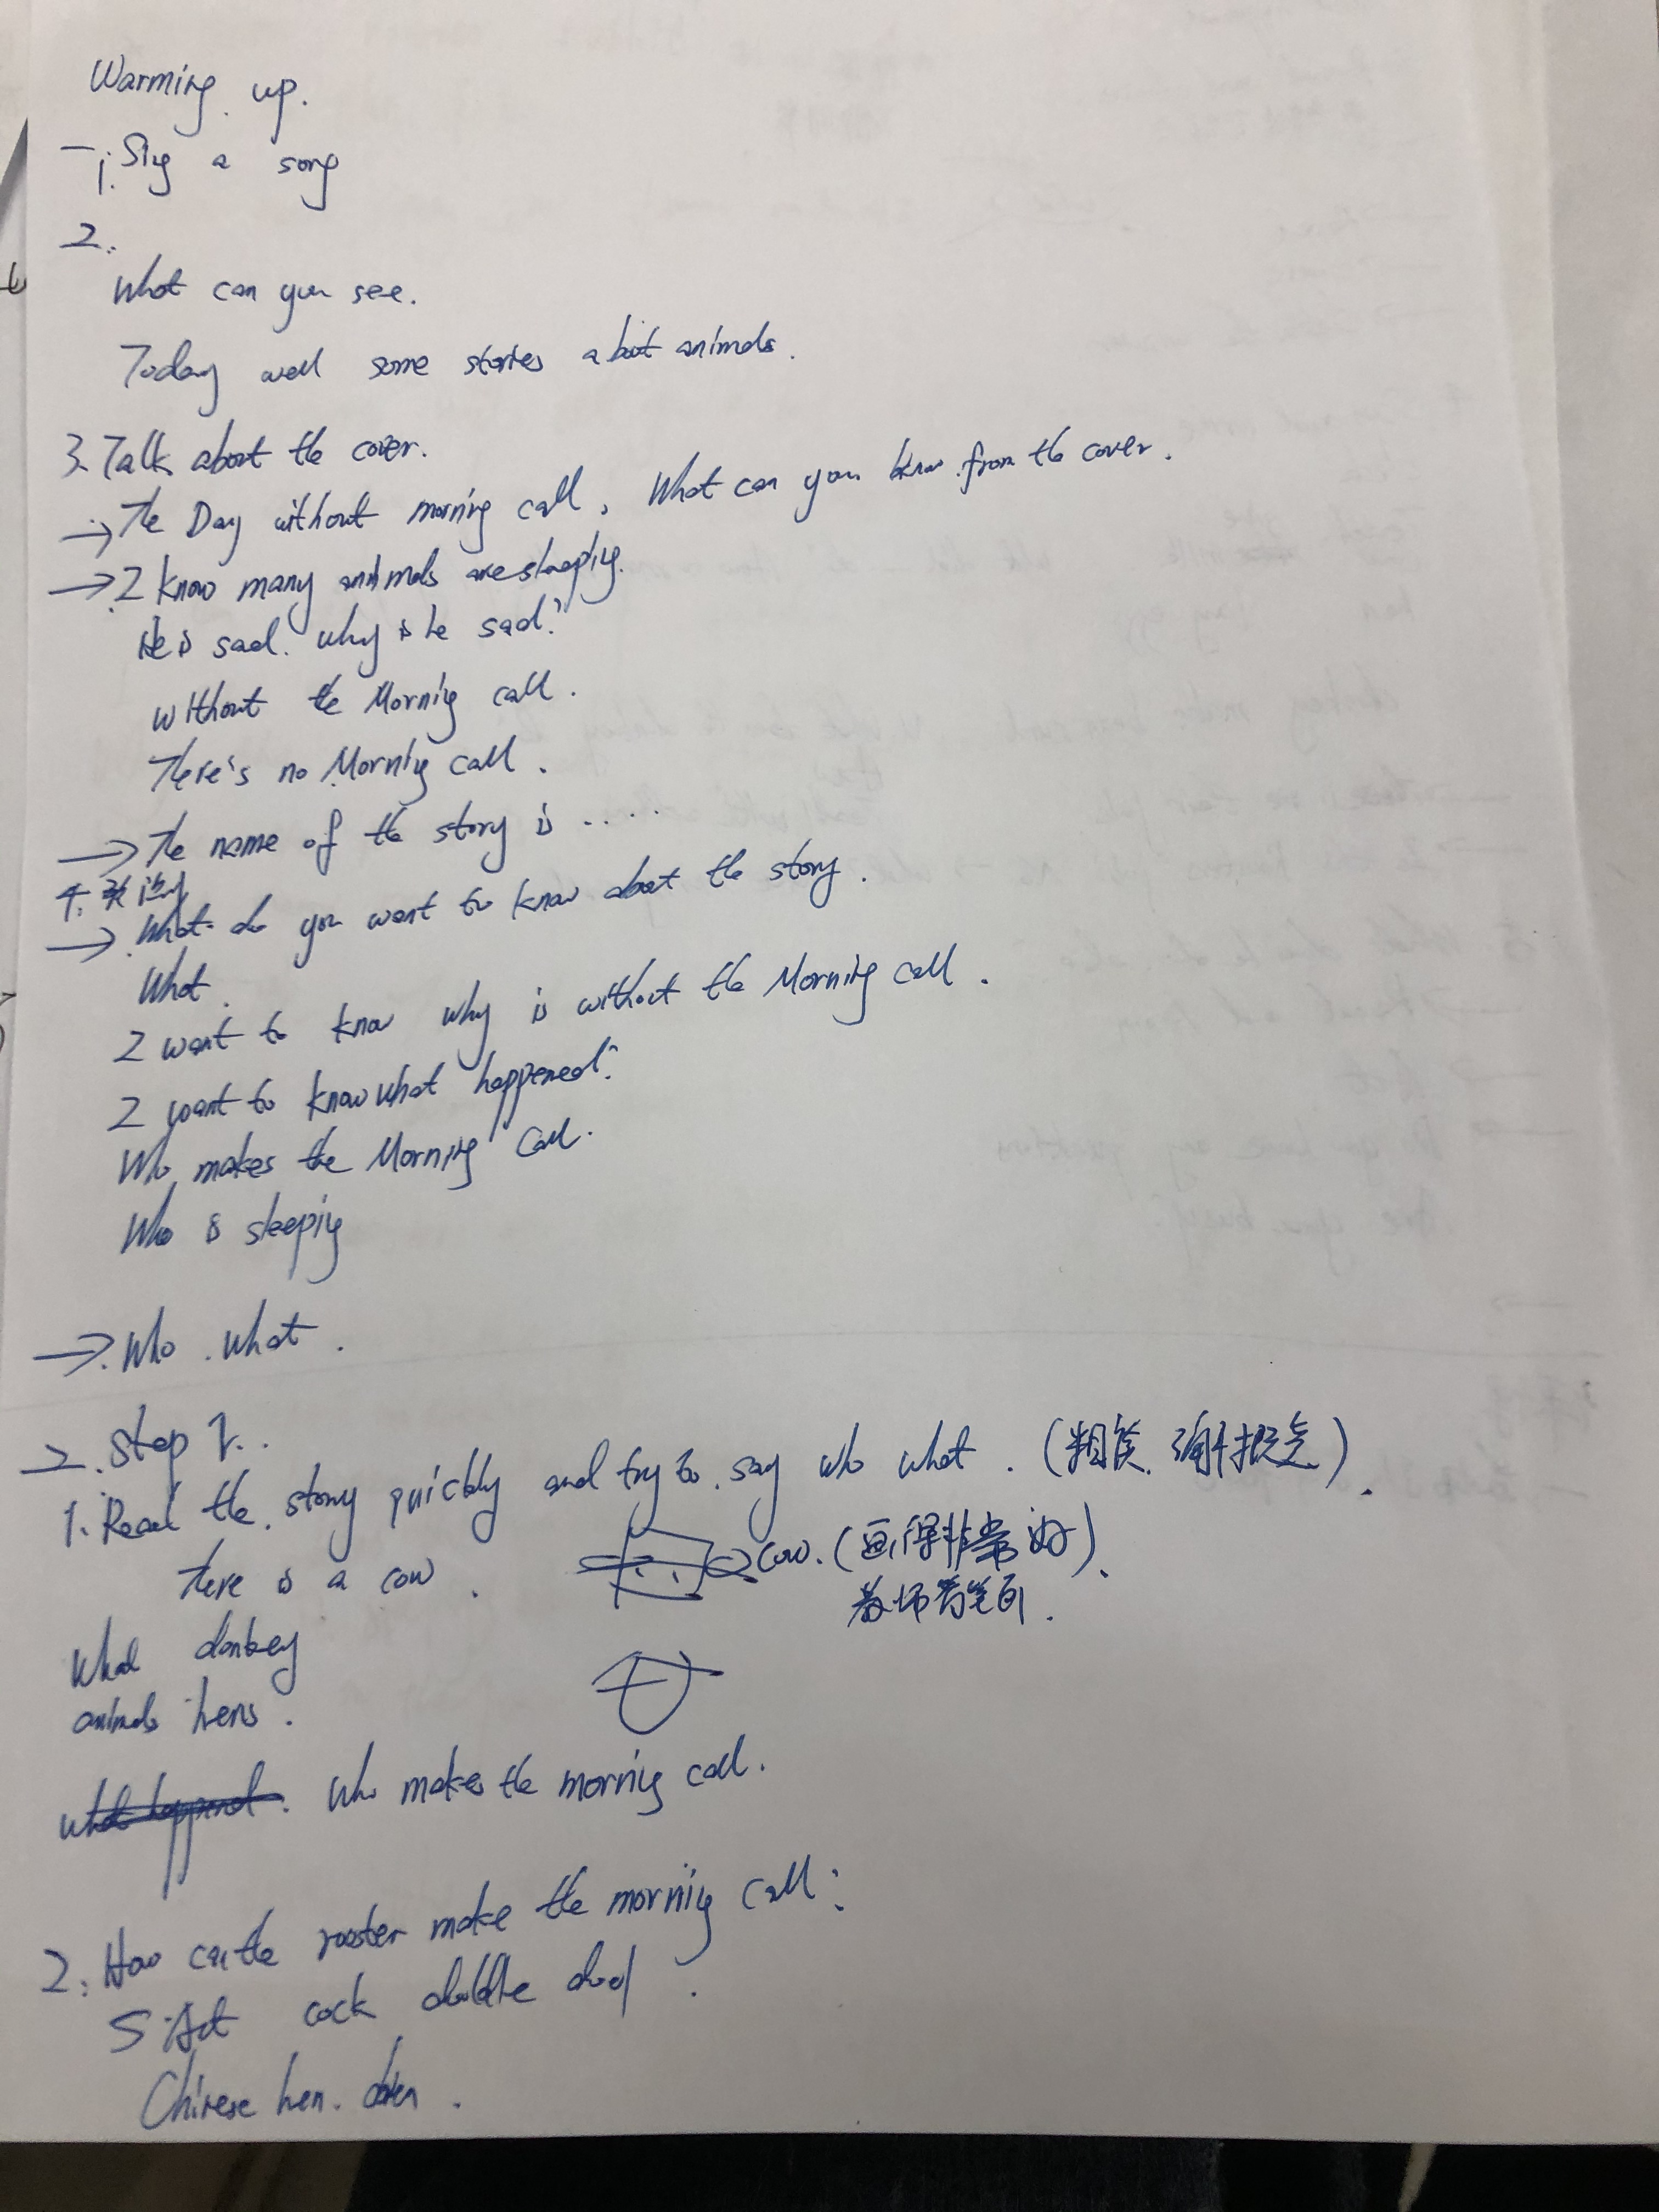 Warming up.
一 1. Sing a song
2.
What can you see.
Today we'll some stories about animals.
3. Talk about the cover.
→ The Day without morning call. What can you know from the cover.
→ I know many animals are sleeping.
He is sad. why is he sad?
Without the Morning call.
There's no Morning call.
→ The name of the story is .....
4.
→ What do you want to know about the story.
What.
I want to know why is without the Morning call.
I want to know what happened?
Who makes the Morning Call.
Who is sleeping
→ Who. what.
二. Step 1.
1. Read the story quickly and try to say who what.
There is a cow. cow. (画得非常好).
教师看笔画.
What donkey
animals hens.
what happened. Who makes the morning call.
2. How can the rooster make the morning call?
S: Act cock doodle doo
Chinese hen.